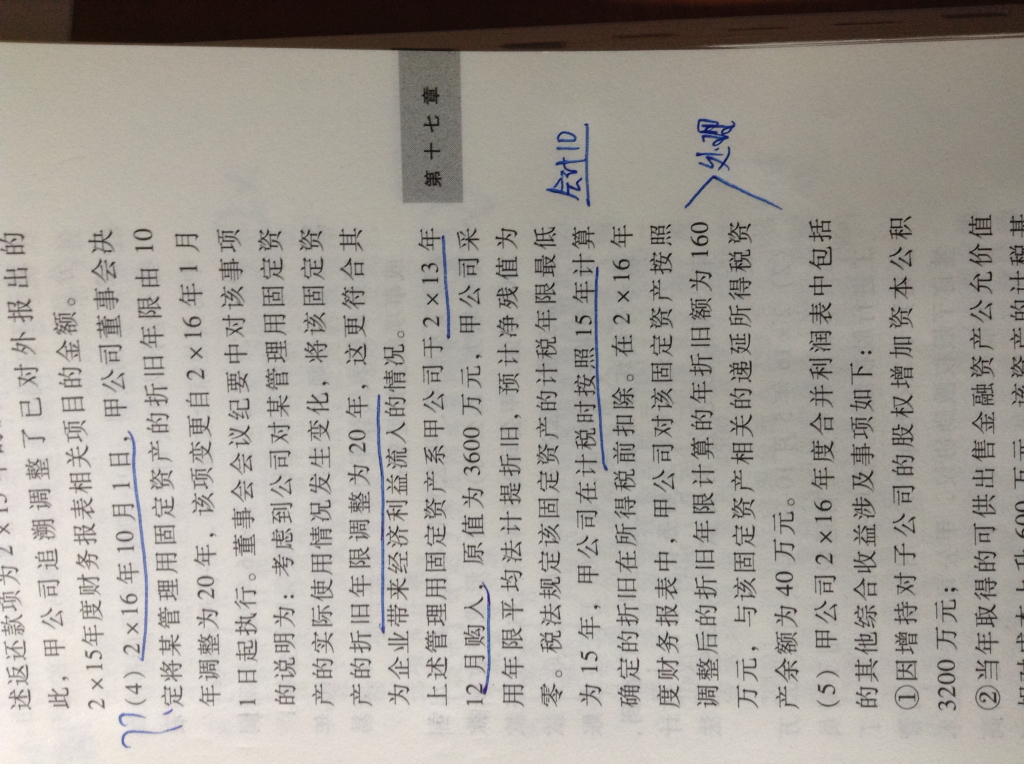 第十七章
述返还款项为2×15年
此，甲公司追溯调整了已对外报出的
2×15年度财务报表相关项目的金额。
(4) 2×16年10月1日，甲公司董事会决
定将某管理用固定资产的折旧年限由10
年调整为20年，该项变更自2×16年1月
1日起执行。董事会会议纪要中对该事项
的说明为：考虑到公司对某管理用固定资
产的实际使用情况发生变化，将该固定资
产的折旧年限调整为20年，这更符合其
为企业带来经济利益流入的情况。
上述管理用固定资产系甲公司于2×13年
12月购入，原值为3600万元，甲公司采
用年限平均法计提折旧，预计净残值为
零。税法规定该固定资产的计税年限最低
为15年，甲公司在计税时按照15年计算
会计10
确定的折旧在所得税前扣除。在2×16年
度财务报表中，甲公司对该固定资产按照
调整后的折旧年限计算的年折旧额为160
处理
万元，与该固定资产相关的递延所得税资
产余额为40万元。
(5) 甲公司2×16年度合并利润表中包括
的其他综合收益涉及事项如下：
①因增持对子公司的股权增加资本公积
3200万元；
②当年取得的可供出售金融资产公允价值
相对成本上升600万元，该资产的计税基